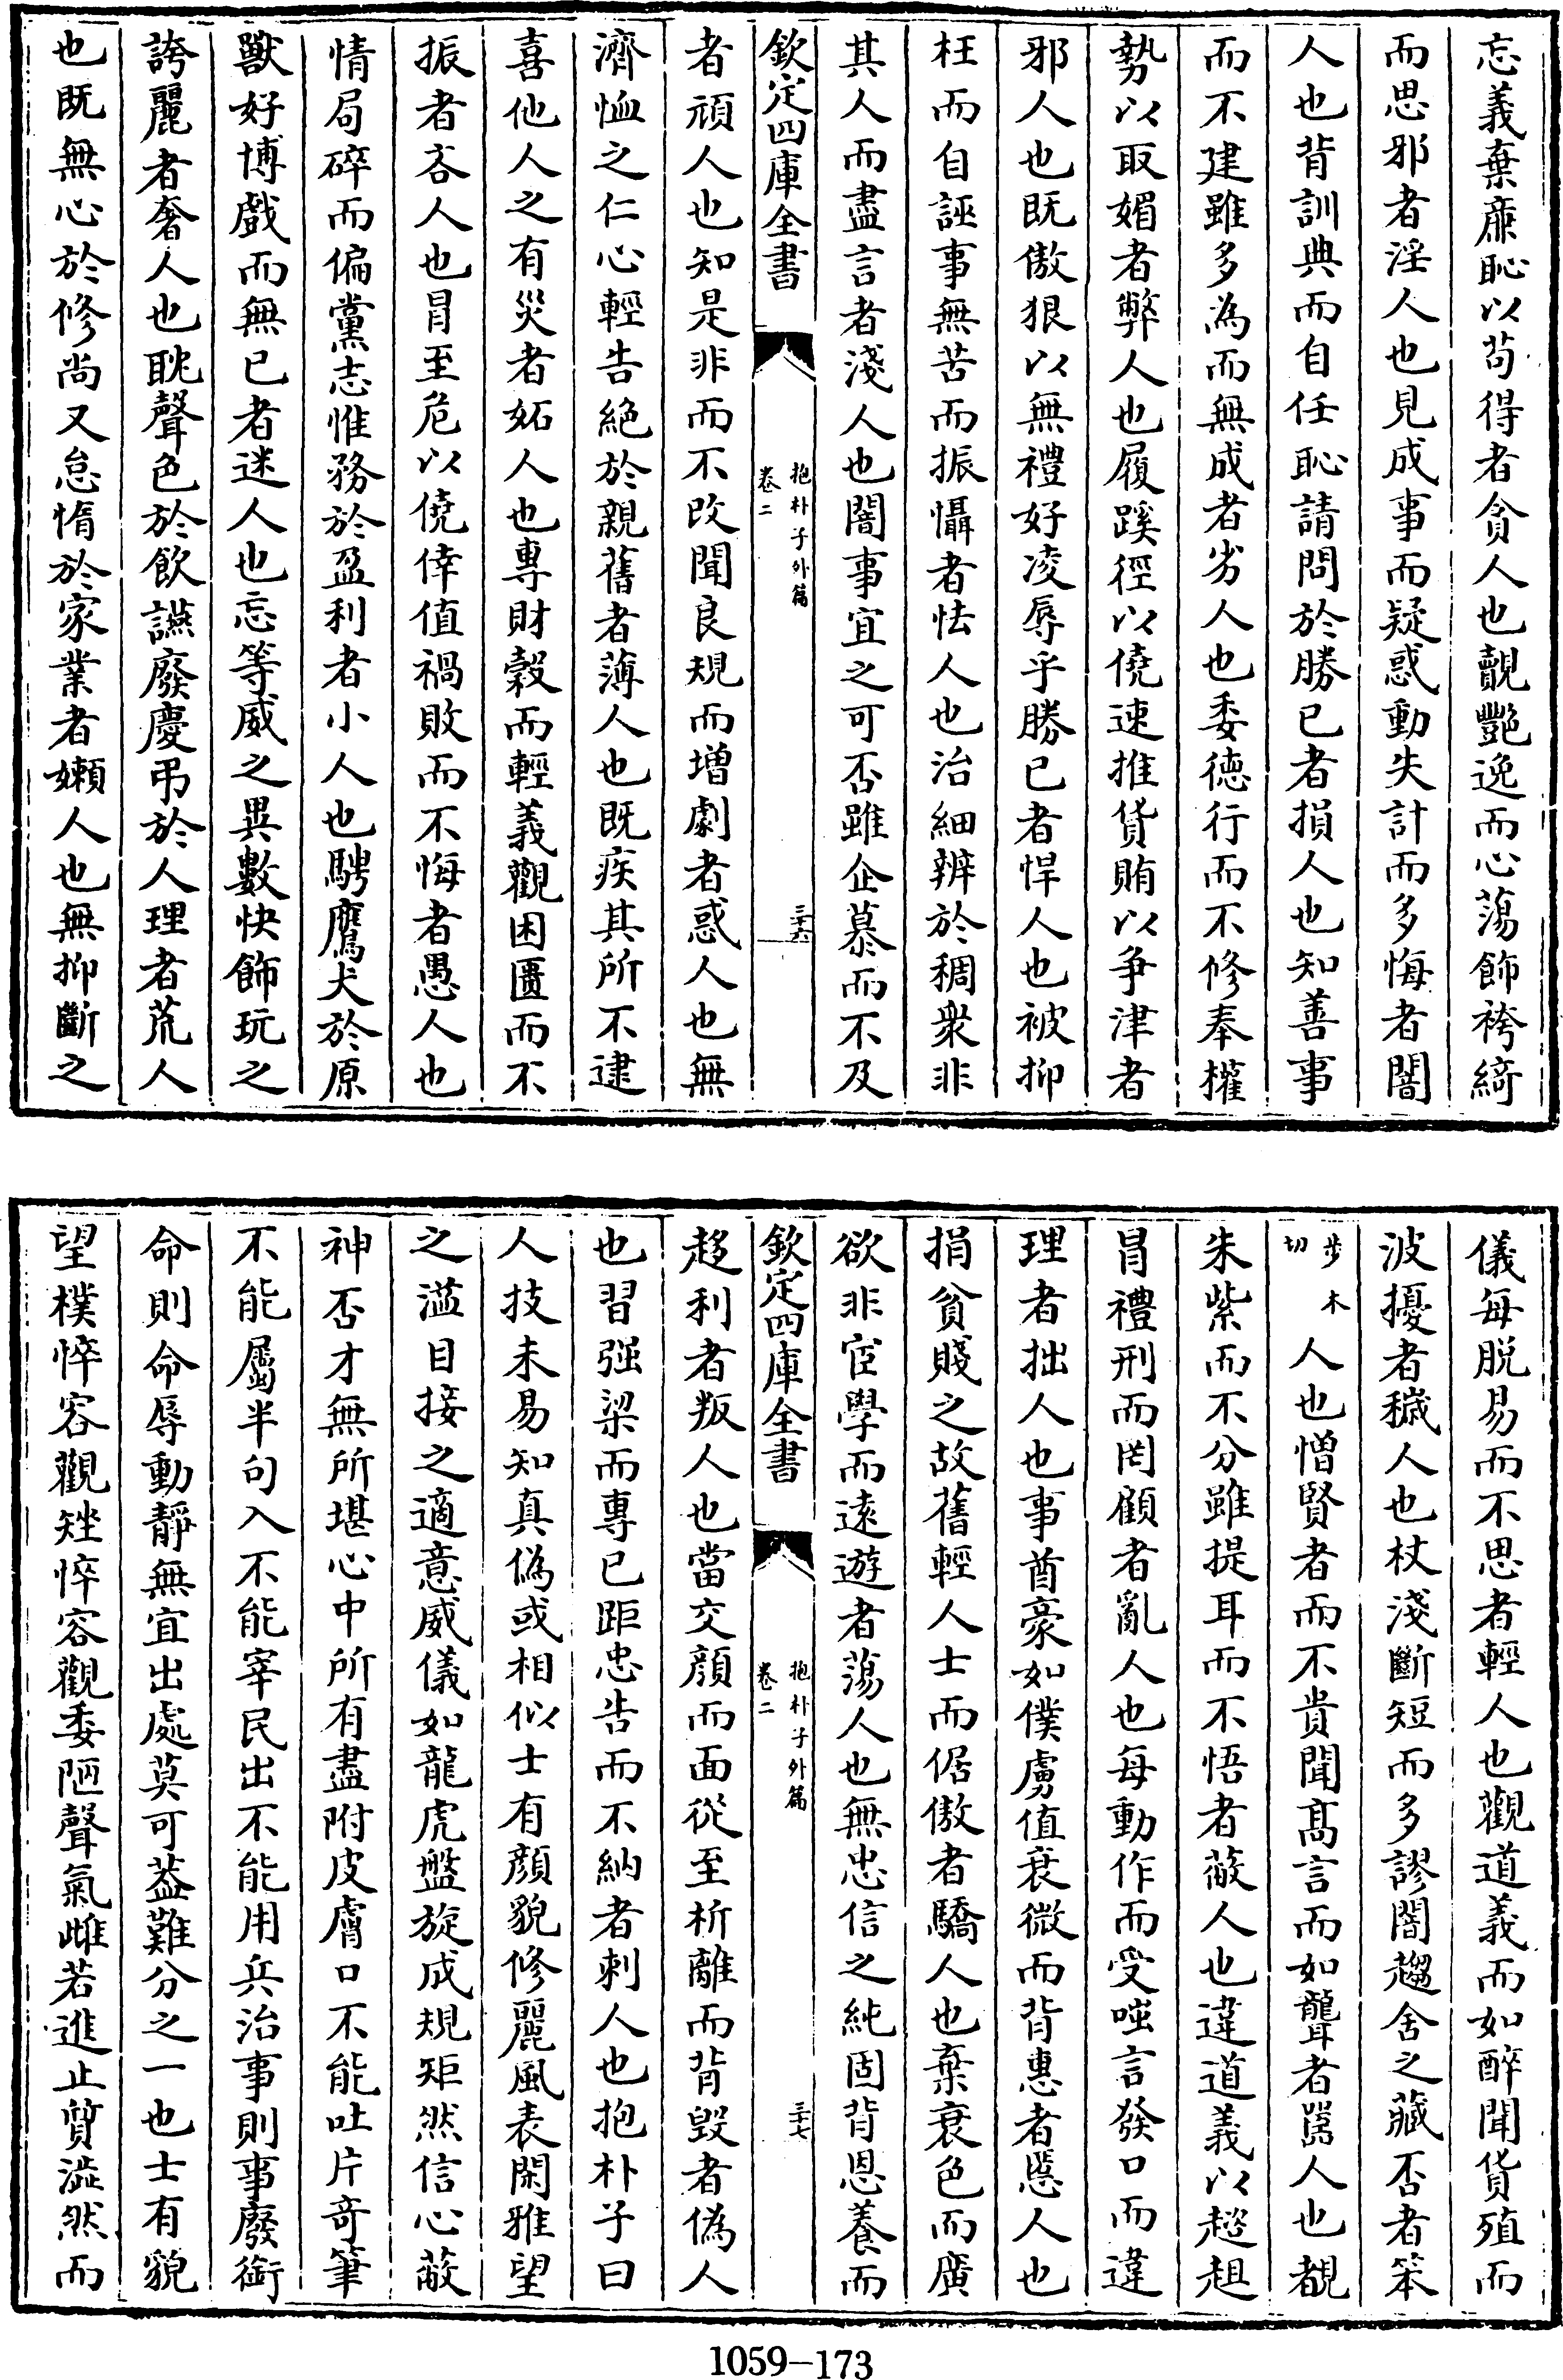 忘義棄亷恥以苟得者貪人也覿艷逸而心蕩飾袴綺
而思邪者淫人也見成事而疑惑動失計而多悔者闇
人也背訓典而自任恥請問於勝已者損人也知善事
而不建雖多為而無成者劣人也委徳行而不修奉權
勢以取媚者弊人也履蹊徑以僥速推貨賄以爭津者
邪人也既傲狠以無禮好凌辱乎勝已者悍人也被抑
枉而自誣事無苦而振懾者怯人也治細辨於稠衆非
其人而盡言者淺人也闇事宜之可否雖企慕而不及
欽定四庫全書
抱朴子外篇
卷二
三十六
者頑人也知是非而不改聞良規而增劇者惑人也無
濟恤之仁心輕告絕於親舊者薄人也既疾其所不逮
喜他人之有災者妬人也專財榖而輕義觀困匱而不
振者吝人也冒至危以僥倖值禍敗而不悔者愚人也
情局碎而偏黨志惟務於盈利者小人也騁鷹犬於原
獸好博戲而無已者迷人也忘等威之異數快飾玩之
誇麗者奢人也耽聲色於飲讌廢慶弔於人理者荒人
也既無心於修尚又怠惰於家業者嬾人也無抑斷之
儀每脱易而不思者輕人也觀道義而如醉聞貨殖而
波擾者穢人也杖淺斷短而多謬闇趨舍之藏否者笨
步木
切
人也憎賢者而不貴聞髙言而如聾者嚚人也覩
朱紫而不分雖提耳而不悟者蔽人也違道義以趑趄
冒禮刑而罔顧者亂人也每動作而受嗤言發口而違
理者拙人也事酋豪如僕虜值衰微而背惠者慝人也
捐貧賤之故舊輕人士而倨傲者驕人也棄衰色而廣
欲非宦學而遠遊者蕩人也無忠信之純固背恩養而
欽定四庫全書
抱朴子外篇
卷二
三十七
趍利者叛人也當交顔而面從至析離而背毀者偽人
也習强梁而專已距忠告而不納者刺人也抱朴子曰
人技未易知真偽或相似士有顔貌修麗風表閑雅望
之溢目接之適意威儀如龍虎盤旋成規矩然信心蔽
神否才無所堪心中所有盡附皮膚口不能吐片竒筆
不能屬半句入不能宰民出不能用兵治事則事廢銜
命則命辱動靜無宜出處莫可葢難分之一也士有貌
望樸悴容觀矬悴容觀委陋聲氣雌若進止質澁然而
1059-173